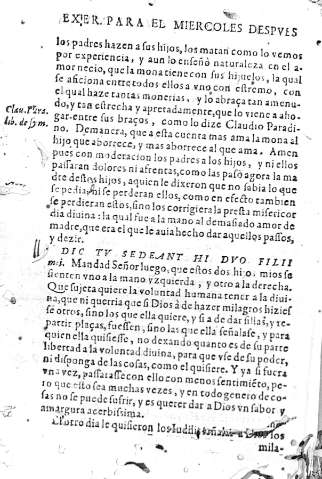 EXER. PARA EL MIERCOLES DESPVES
los padres hazen a sus hijos, los matan como lo vemos
por experiencia, y aun lo enseñò naturaleza en el a-
mor necio, que la mona tiene con sus hijuelos, la qual
se aficiona entre todos ellos a vno con estremo, con
el qual haze tantas monerias, y lo abraça tan amenu-
do, y tan estrecha y apretadamente, que lo viene a aho-
Clau. Para.
lib. de sym.
gar entre sus braços, como lo dize Claudio Paradi-
no. Demanera, que a esta cuenta mas ama la mona al
hijo que aborrece, y mas aborrece al que ama. Amen
pues con moderacion los padres a los hijos, y ni ellos
passaran dolores ni afrentas, como las passò agora la ma
dre destos hijos, a quien le dixeron que no sabia lo que
se pedia, ni se perderan ellos, como en efecto tambien
se perdieran estos, sino los corrigiera la presta misericor
dia diuina: la qual fue a la mano al demasiado amor de
madre, que era el que le auia hecho dar aquellos passos,
y dezir.
DIC VT SEDEANT HI DVO FILII
mei. Mandad Señor luego, que estos dos hijos mios se
sienten vno a la mano yzquierda, y otro a la derecha.
Que sujeta quiere la voluntad humana tener a la diui-
na, que ni querria que si Dios à de hazer milagros hiziesse
otros, sino los que ella quiere, y si a de dar sillas, y re-
partir plaças, fuessen, sino las que ella señalase, y para
quien ella quisiesse, no dexando quanto es de su parte
libertad a la voluntad diuina, para que vse de su poder,
ni disponga de las cosas, como el quisiere. Y ya si fuera
vna vez, passarasse con ello con menos sentimiéto, pe-
ro que esto sea muchas vezes, y en todo genero de co-
sas no se puede sufrir, y es querer dar a Dios vn sabor y
amargura acerbissima.
El otro dia le quisieron los Iudios señalar a Dios los
mila-